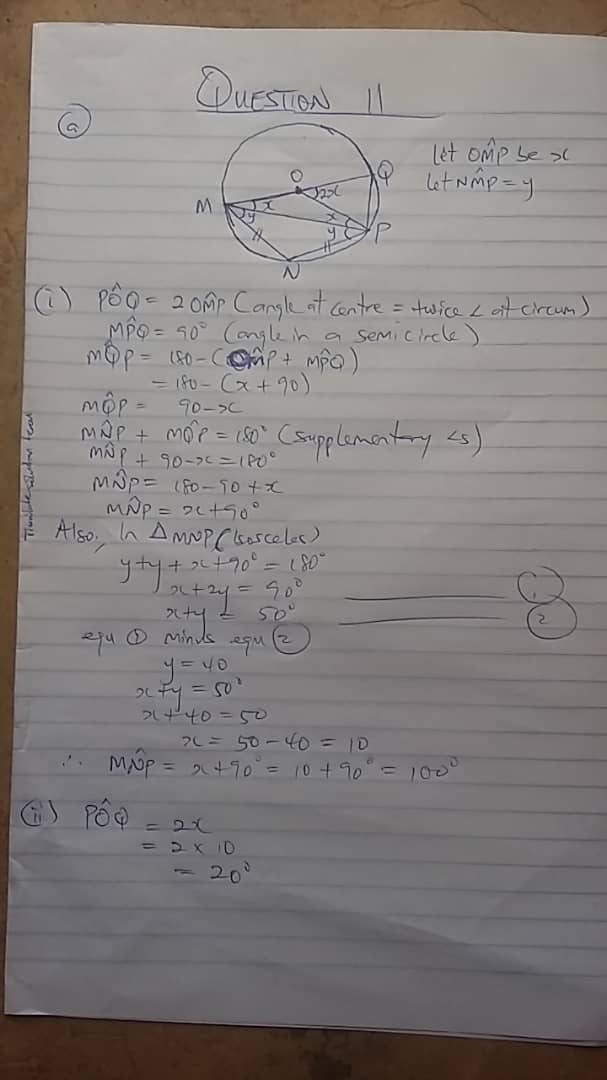 QUESTION 11
(a)
let OM̂P be x
let NM̂P = y
O
Q
2x
M
x
y
x
y
P
N
(i) PÔQ = 2 OM̂P (angle at centre = twice < at circum)
MP̂Q = 90° (angle in a semicircle)
MQ̂P = 180 - (OM̂P + MP̂Q)
= 180 - (x + 90)
MQ̂P = 90 - x
MN̂P + MQ̂P = 180° (supplementary <s)
MN̂P + 90 - x = 180°
MN̂P = 180 - 90 + x
MN̂P = x + 90°
Also, In Δ MNP (Isosceles)
y + y + x + 90° = 180°
x + 2y = 90° (1)
x + y = 50° (2)
equ (1) minus equ (2)
y = 40
x + y = 50°
x + 40 = 50
x = 50 - 40 = 10
∴ MN̂P = x + 90° = 10 + 90° = 100°
(ii) PÔQ = 2x
= 2 × 10
= 20°